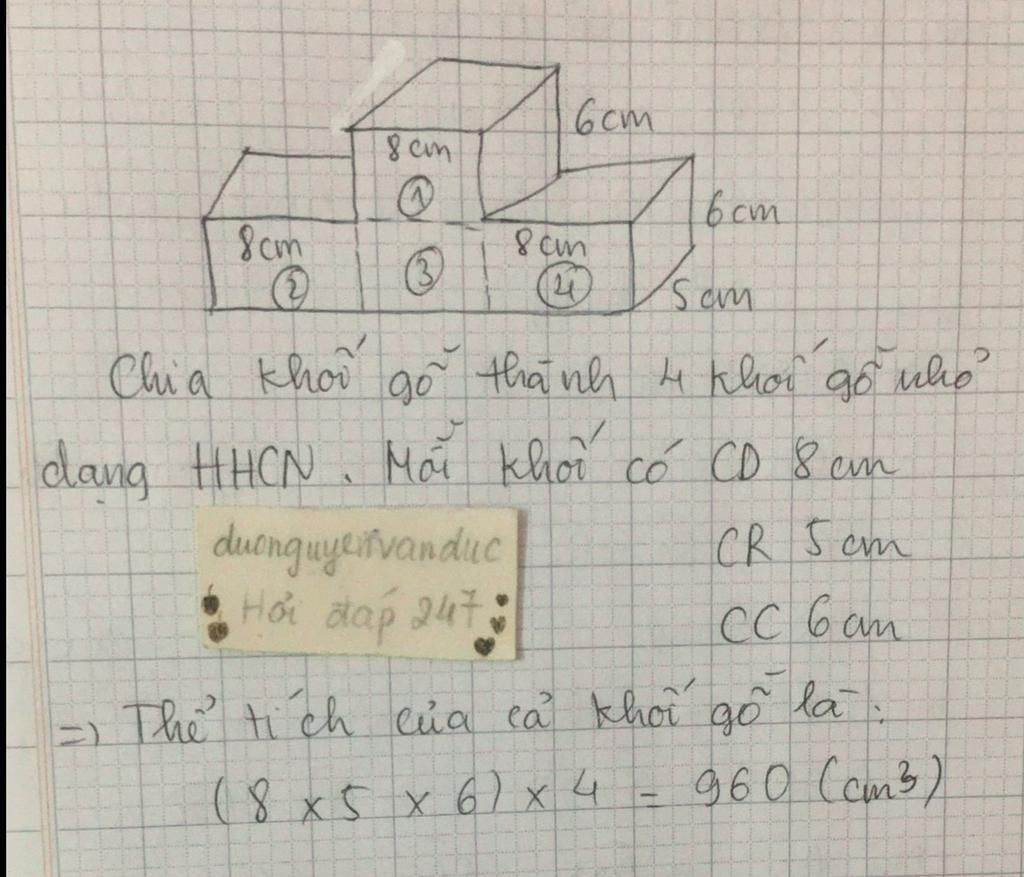 6cm
8cm
①
6cm
8cm
8cm
②
③
④
5cm
Chia khối gỗ thành 4 khối gỗ nhỏ
dạng HHCN. Mỗi khối có CD 8cm
CR 5cm
CC 6cm
duonguyenvanduc
Hỏi đáp 247
=) Thể tích của cả khối gỗ là:
(8 x 5 x 6) x 4 = 960 (cm3)